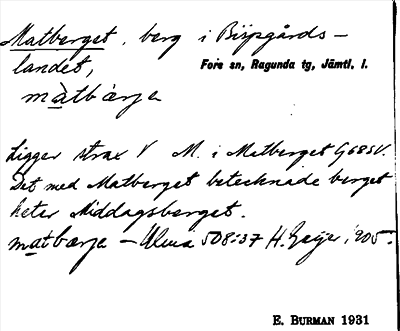 Matberget, berg i Bispgårds-
landet,
Fors sn, Ragunda tg, Jämtl. l.
màtbærje
Ligger strax V M. i Matberget G68SV.
Det med Matberget betecknade berget
heter Middagsberget.
matbærje – Ulma 508:37 H. Geijer 1905.
E. BURMAN 1931